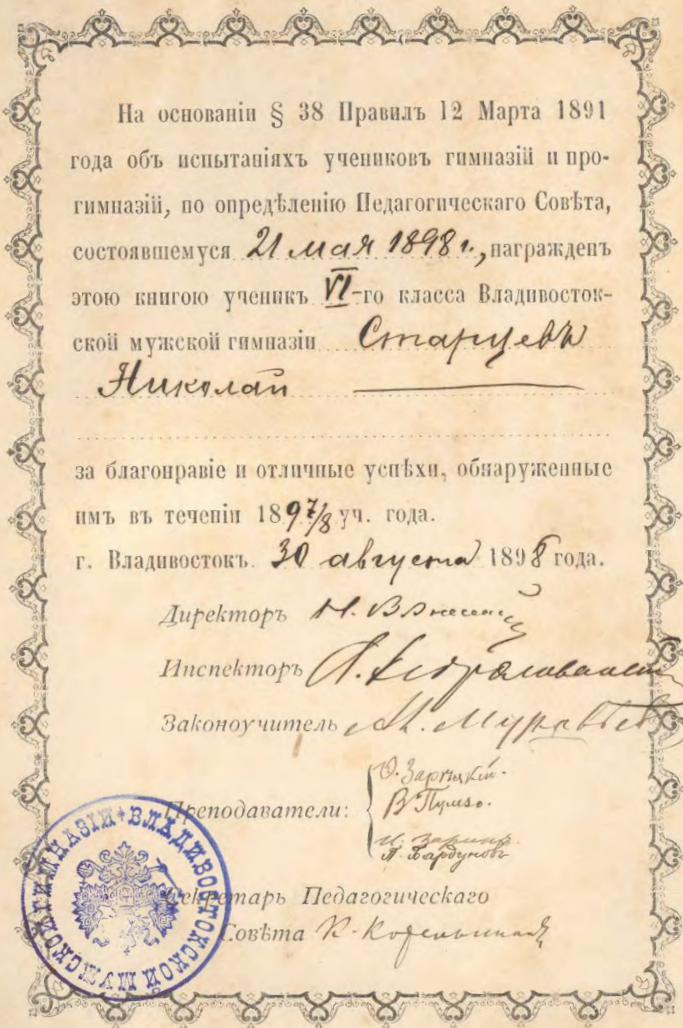 На основаніи § 38 Правилъ 12 Марта 1891
года объ испытаніяхъ учениковъ гимназій и про-
гимназій, по опредѣленію Педагогическаго Совѣта,
состоявшемуся 21 мая 1898 г., награжденъ
этою книгою ученикъ VI-го класса Владивосток-
ской мужской гимназіи Старцевъ
Николай
за благонравіе и отличные успѣхи, обнаруженные
имъ въ теченіи 1897/8 уч. года.
г. Владивостокъ. 30 августа 1898 года.
Директоръ
Инспекторъ
Законоучитель М. Муравьев
Преподаватели:
В
П. Бардуновъ
Секретарь Педагогическаго
Совѣта К.
ВЛАДИВОСТОКСКОЙ МУЖСКОЙ ГИМНАЗІИ